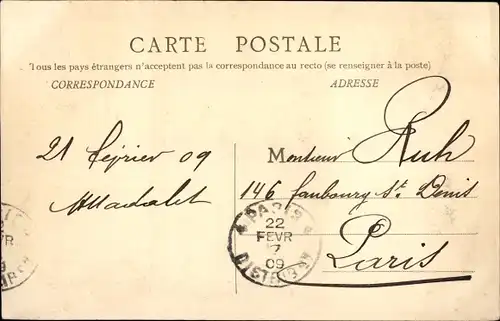 CARTE POSTALE
Tous les pays étrangers n'acceptent pas la correspondance au recto (se renseigner à la poste)
CORRESPONDANCE
ADRESSE
21 février 09
Monsieur Ruh
146 faubourg St. Denis
Paris
PARIS
22
FEVR
09
DISTRIBUTION